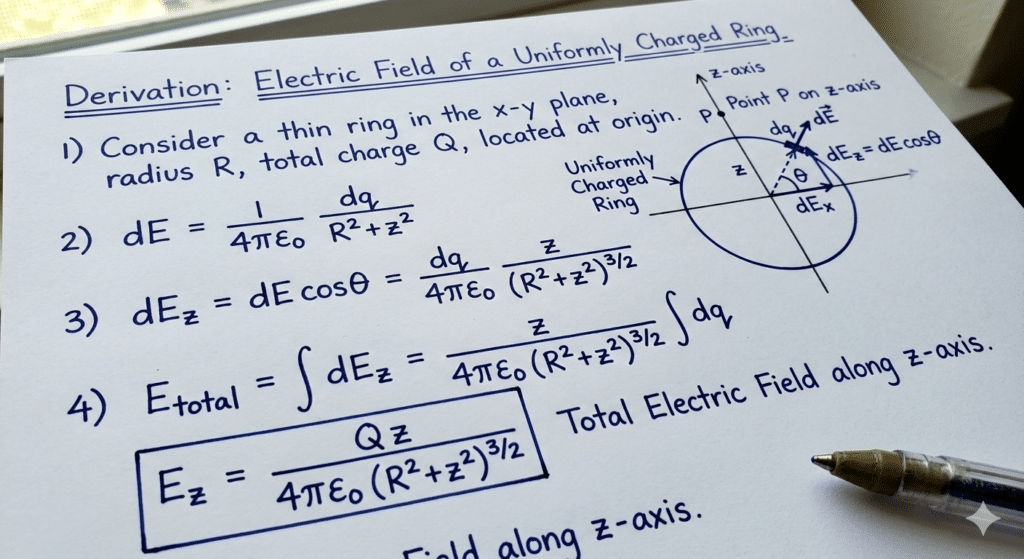 Derivation: Electric Field of a Uniformly Charged Ring
1) Consider a thin ring in the x-y plane,
radius R, total charge Q, located at origin.
z-axis
P
Point P on z-axis
dq
dE⃗
dE_z = dE cosθ
Uniformly
Charged
Ring
z
θ
dE_x
2) dE = 1/(4πε₀) dq/(R²+z²)
3) dE_z = dE cosθ = dq/(4πε₀) z/(R²+z²)^(3/2)
4) E_total = ∫ dE_z = z/(4πε₀(R²+z²)^(3/2)) ∫ dq
E_z = Qz/(4πε₀(R²+z²)^(3/2))
Total Electric Field along z-axis.
Field along z-axis.